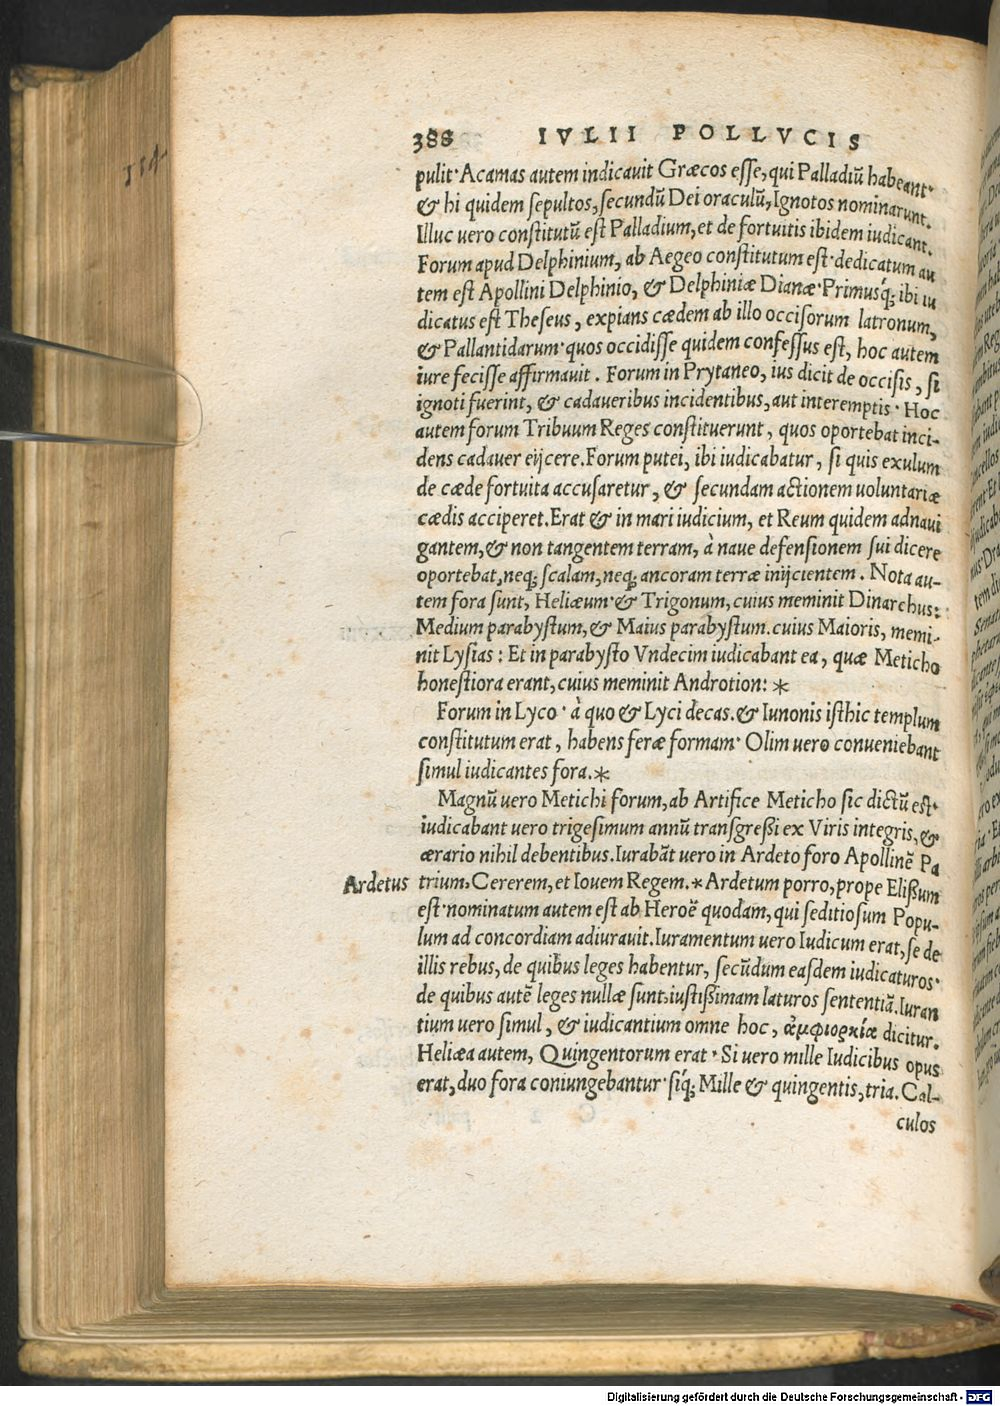 388 IVLII POLLVCIS
pulit· Acamas autem indicauit Græcos esse, qui Palladiū habeant·
& hi quidem sepultos, secundū Dei oraculū, Ignotos nominarunt.
Illuc uero constitutū est Palladium, et de fortuitis ibidem iudicant.
Forum apud Delphinium, ab Aegeo constitutum est· dedicatum au
tem est Apollini Delphinio, & Delphiniæ Dianæ· Primusq́; ibi iu
dicatus est Theseus, expians cædem ab illo occisorum latronum,
& Pallantidarum· quos occidisse quidem confessus est, hoc autem
iure fecisse affirmauit. Forum in Prytaneo, ius dicit de occisis, si
ignoti fuerint, & cadaueribus incidentibus, aut interemptis· Hoc
autem forum Tribuum Reges constituerunt, quos oportebat inci-
dens cadauer eijcere. Forum putei, ibi iudicabatur, si quis exulum
de cæde fortuita accusaretur, & secundam actionem uoluntariæ
cædis acciperet. Erat & in mari iudicium, et Reum quidem adnaui
gantem, & non tangentem terram, à naue defensionem sui dicere
oportebat, neq; scalam, neq; ancoram terræ inijcientem. Nota au-
tem fora sunt, Heliæum· & Trigonum, cuius meminit Dinarchus:
Medium parabystum, & Maius parabystum. cuius Maioris, memi-
nit Lysias: Et in parabysto Vndecim iudicabant ea, quæ Meticho
honestiora erant, cuius meminit Androtion: *
Forum in Lyco· à quo & Lyci decas. & Iunonis isthic templum
constitutum erat, habens feræ formam· Olim uero conueniebant
simul iudicantes fora. *
Magnū uero Metichi forum, ab Artifice Meticho sic dictū est·
iudicabant uero trigesimum annū transgressi ex Viris integris, &
ærario nihil debentibus. Iurabāt uero in Ardeto foro Apollinē Pa
Ardetus trium. Cererem, et Iouem Regem. * Ardetum porro, prope Elissum
est· nominatum autem est ab Heroë quodam, qui seditiosum Popu-
lum ad concordiam adiurauit. Iuramentum uero Iudicum erat, se de
illis rebus, de quibus leges habentur, secūdum easdem iudicaturos·
de quibus autē leges nullæ sunt, iustissimam laturos sententiā. Iuran
tium uero simul, & iudicantium omne hoc, ἀμφιορκία dicitur.
Heliæa autem, Quingentorum erat· Si uero mille Iudicibus opus
erat, duo fora coniungebantur· siq́; Mille & quingentis, tria. Cal-
culos
Digitalisierung gefördert durch die Deutsche Forschungsgemeinschaft - DFG